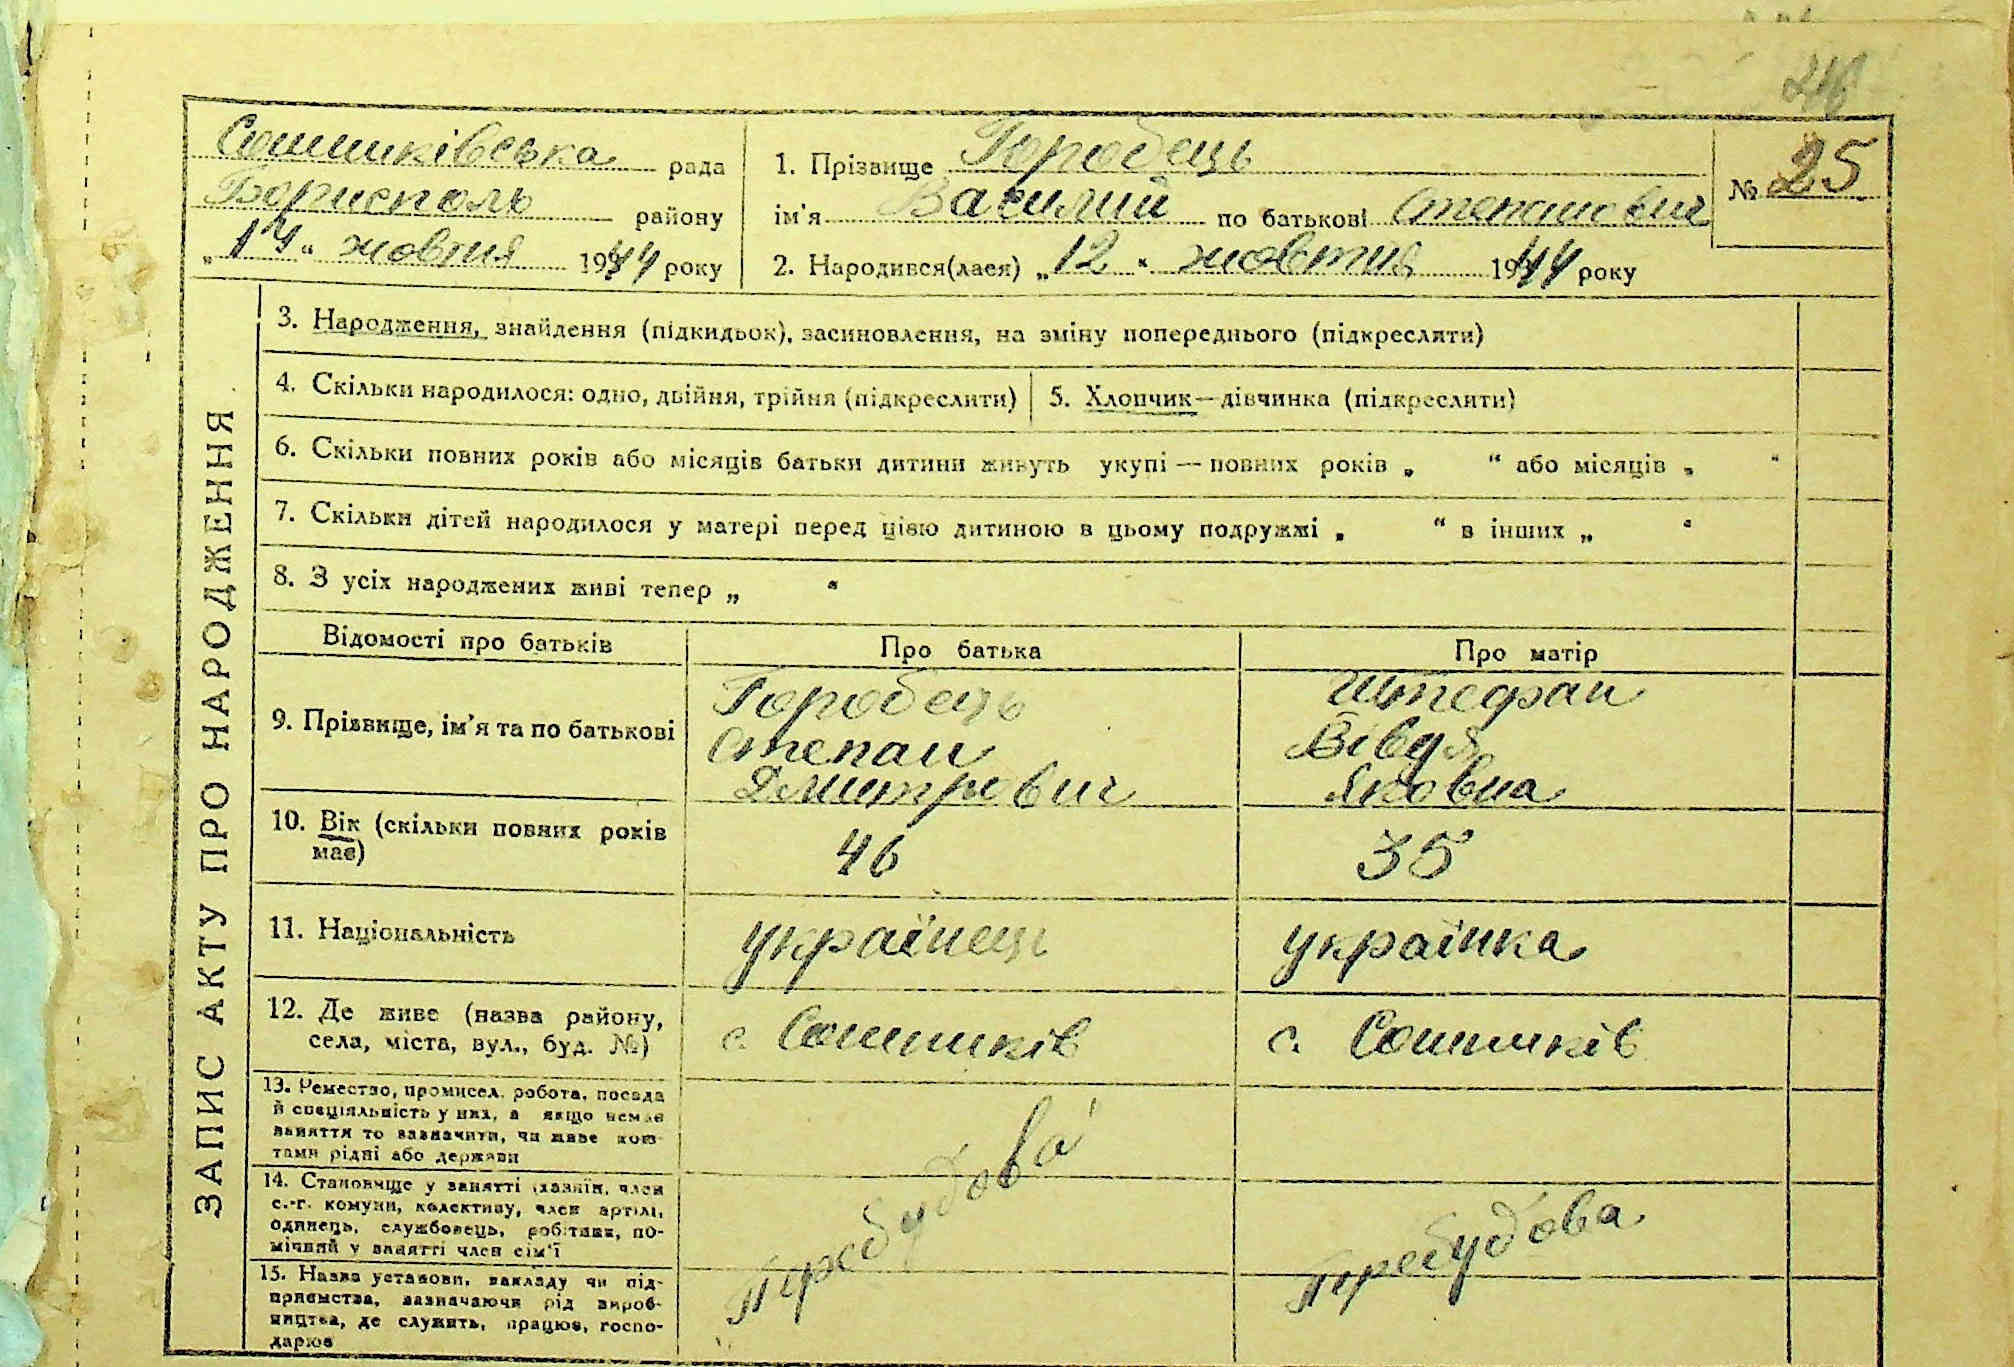 246
Сошниківська рада
Бориспoль району
„14“ жовтня 1944 року
1. Прізвище Горобець
ім'я Василий по батькові Степанович
2. Народився(лася) „12“ жовтня 1944 року
№ 25
ЗАПИС АКТУ ПРО НАРОДЖЕННЯ
3. Народження, знайдення (підкидьок), засиновлення, на зміну попереднього (підкреслити)
4. Скільки народилося: одно, двійня, трійня (підкреслити) 5. Хлопчик—дівчинка (підкреслити)
6. Скільки повних років або місяців батьки дитини живуть укупі — повних років „ “ або місяців „ “
7. Скільки дітей народилося у матері перед цією дитиною в цьому подружжі „ “ в інших „ “
8. З усіх народжених живі тепер „ “
Відомості про батьків Про батька Про матір
9. Прізвище, ім'я та по батькові
Горобець
Степан
Дмитрович
Штефан
Вівдя
Яковна
10. Вік (скільки повних років
має)
46 35
11. Національність українець українка
12. Де живе (назва району,
села, міста, вул., буд. №)
с. Сошників с. Сошників
13. Ремество, промисел. робота, посада
й спеціяльність у них, а якщо немає
заняття то зазначити, чи живе кош-
тами рідні або держави
14. Становище у занятті (хазяїн, член
с.-г. комуни, колективу, член артілі,
одинець, службовець, робітник, по-
мічний у занятті член сім'ї
15. Назва установи, закладу чи під-
приємства, зазначаючи рід вироб-
ництва, де служить, працює, госпо-
дарює
Перебудова Перебудова